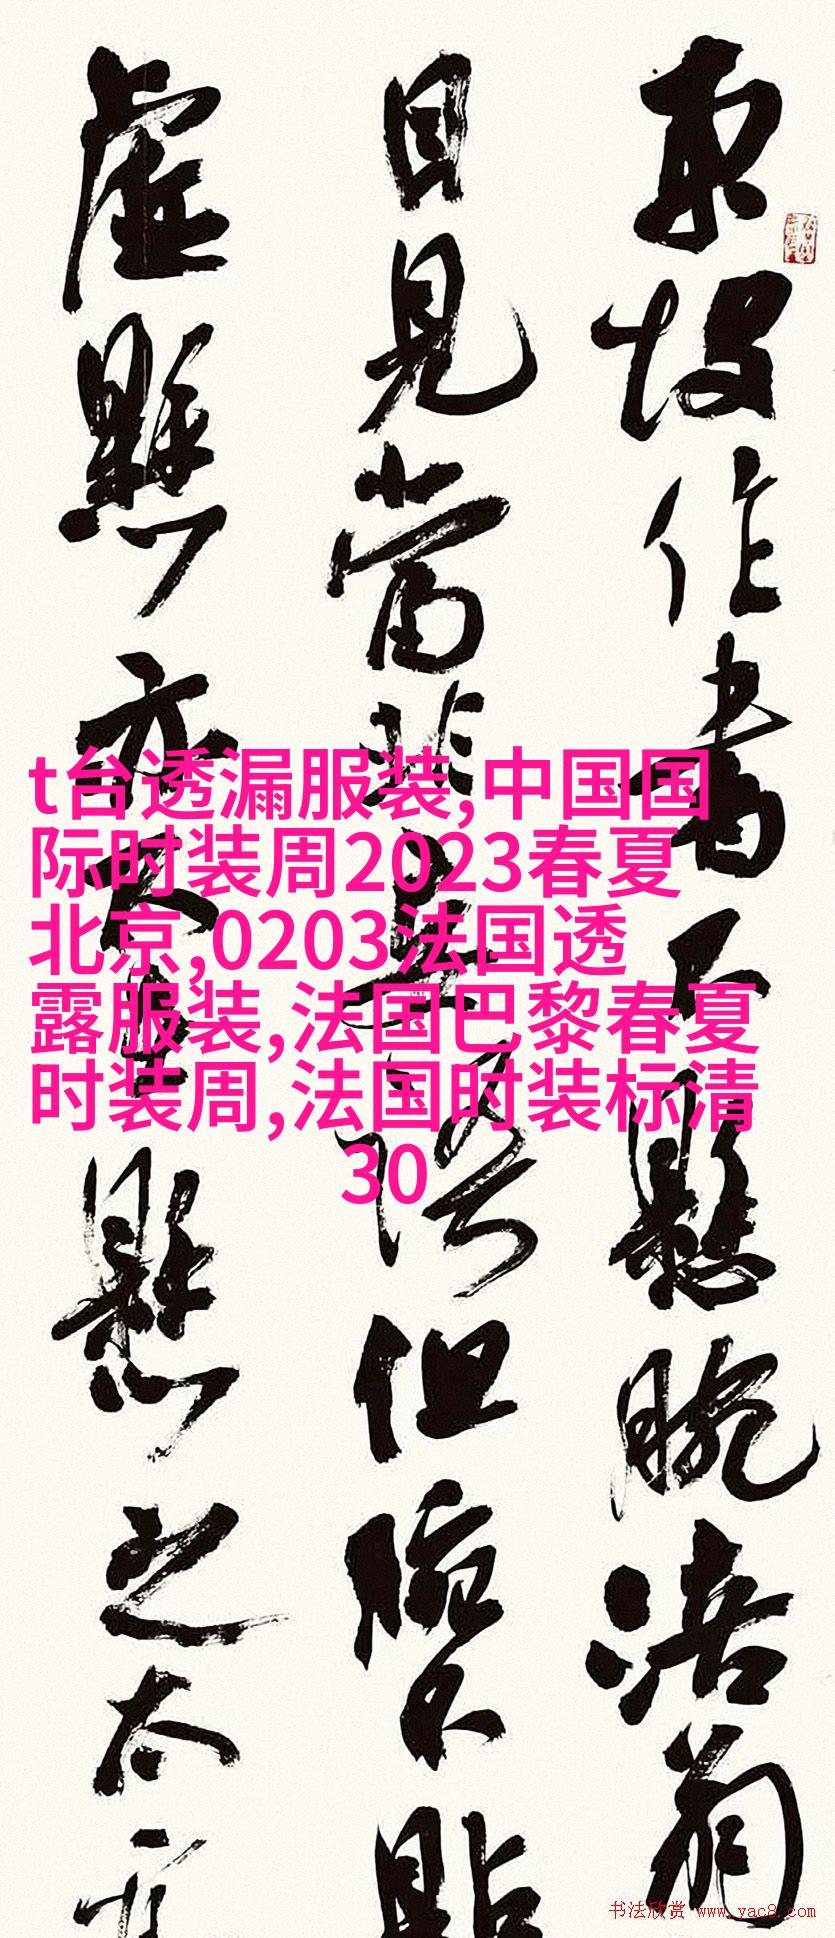 東坡作書不懸腕涪翁
目見當非語但腕不貼
虛懸亦不懸之太
t台透漏服装,中国国
际时装周2023春夏
北京,0203法国透
露服装,法国巴黎春夏
时装周,法国时装标清
30
书法欣赏 www.yac8.com